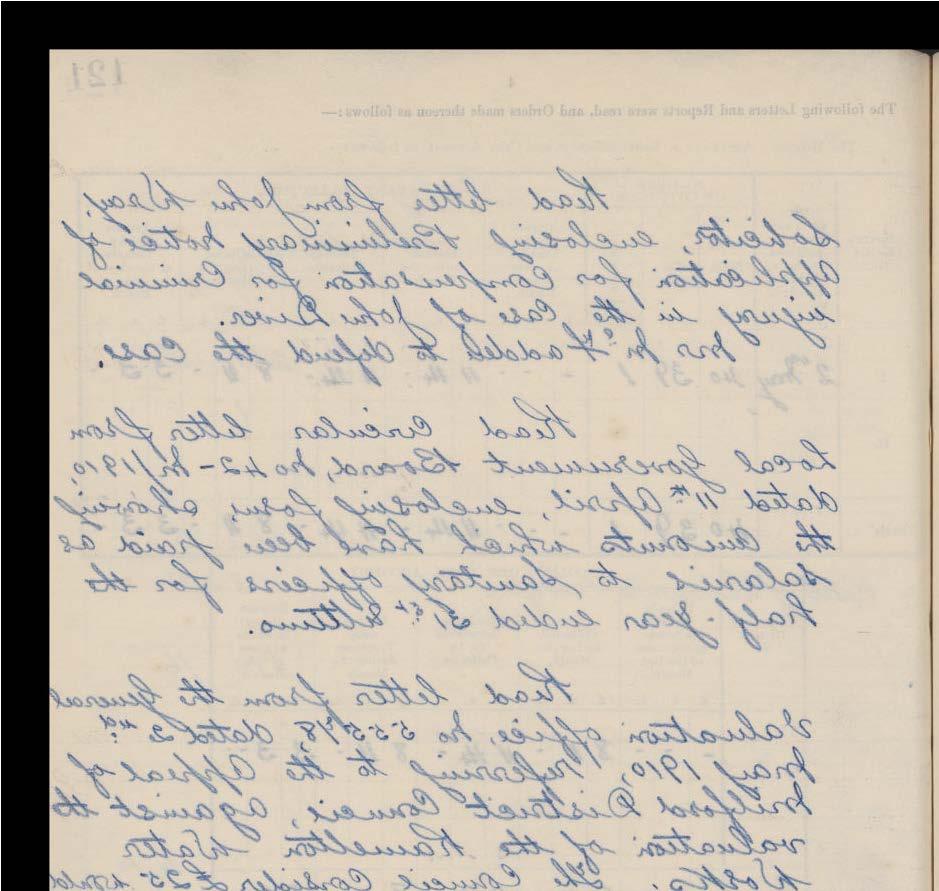 121
The following Letters and Reports were read, and Orders made thereon as follows:—
Read letter from John Wray,
Solicitor, enclosing Preliminary notice of
Application for Compensation for Criminal
injury in the case of John Diver.
Mr McFadden to defend the case.
Read Circular letter from
Local Government Board, No 42-M/1910,
dated 11th April, enclosing form, showing
the amounts which have been paid as
Salaries to Sanitary Officers for the
half-year ended 31st Ultimo.
Read letter from the General
Valuation Office No 5558, dated 2nd
May 1910, referring to the Appeal of
Milford District Council, against the
valuation of the Ramelton Water
Works. The Council Consider £25 would